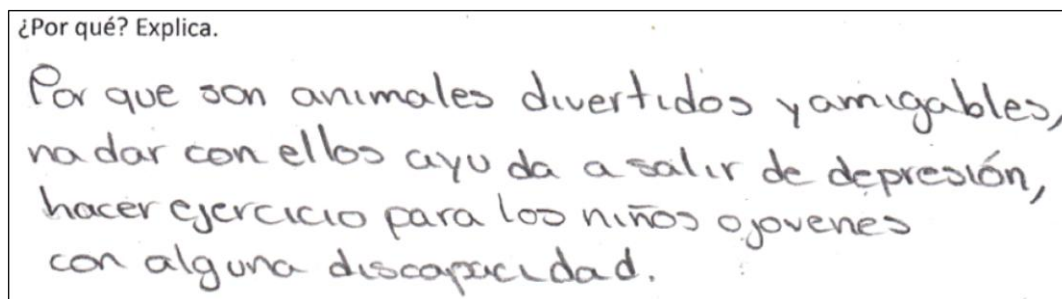 ¿Por qué? Explica.
Por que son animales divertidos y amigables,
nadar con ellos ayuda a salir de depresión,
hacer ejercicio para los niños o jovenes
con alguna discapacidad.